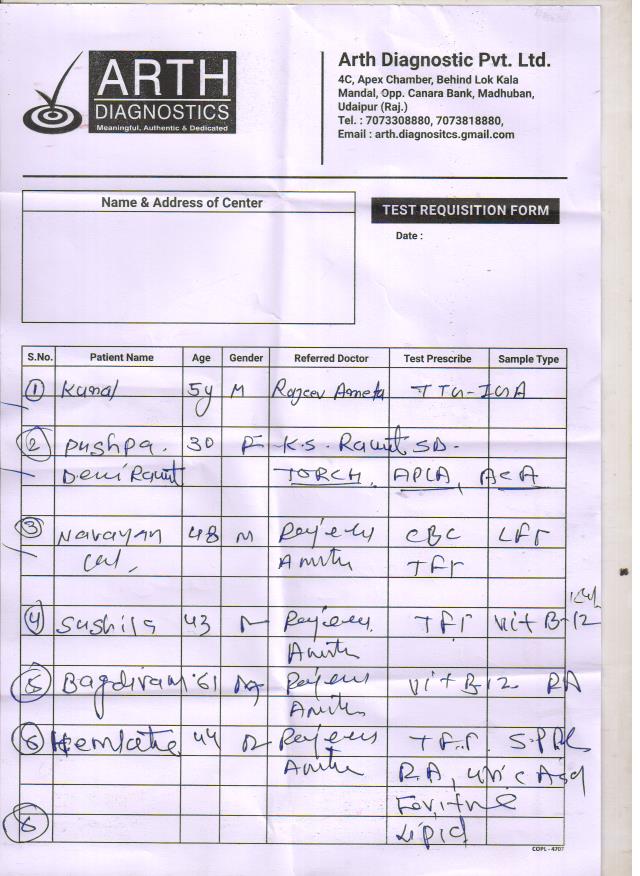 ARTH
DIAGNOSTICS
Meaningful, Authentic & Dedicated
Arth Diagnostic Pvt. Ltd.
4C, Apex Chamber, Behind Lok Kala
Mandal, Opp. Canara Bank, Madhuban,
Udaipur (Raj.)
Tel. : 7073308880, 7073818880,
Email : arth.diagnositcs.gmail.com
Name & Address of Center
TEST REQUISITION FORM
Date :
S.No. Patient Name Age Gender Referred Doctor Test Prescribe Sample Type
1 Kunal 5y M Rajeev Ameta TTG-IGA
2 Pushpa. 30 F K.S. Rawat
Devi Rawat TORCH, APLA, ACA
3 Narayan 48 M CBC LFT
Lal, TFT
4 Sushila 43 TFT Vit B-12
5 Bagdiram 61 M Vit B12 RA
6 Hemlata 44 TFT
RA, uric Acid
Lipid
6
COPL - 4707